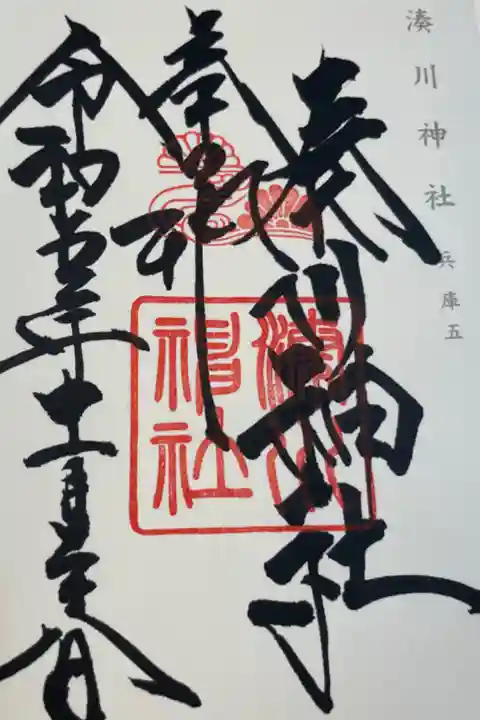 湊川神社 兵庫五
湊川神社
奉拝
令和年十一月日
湊川
神社